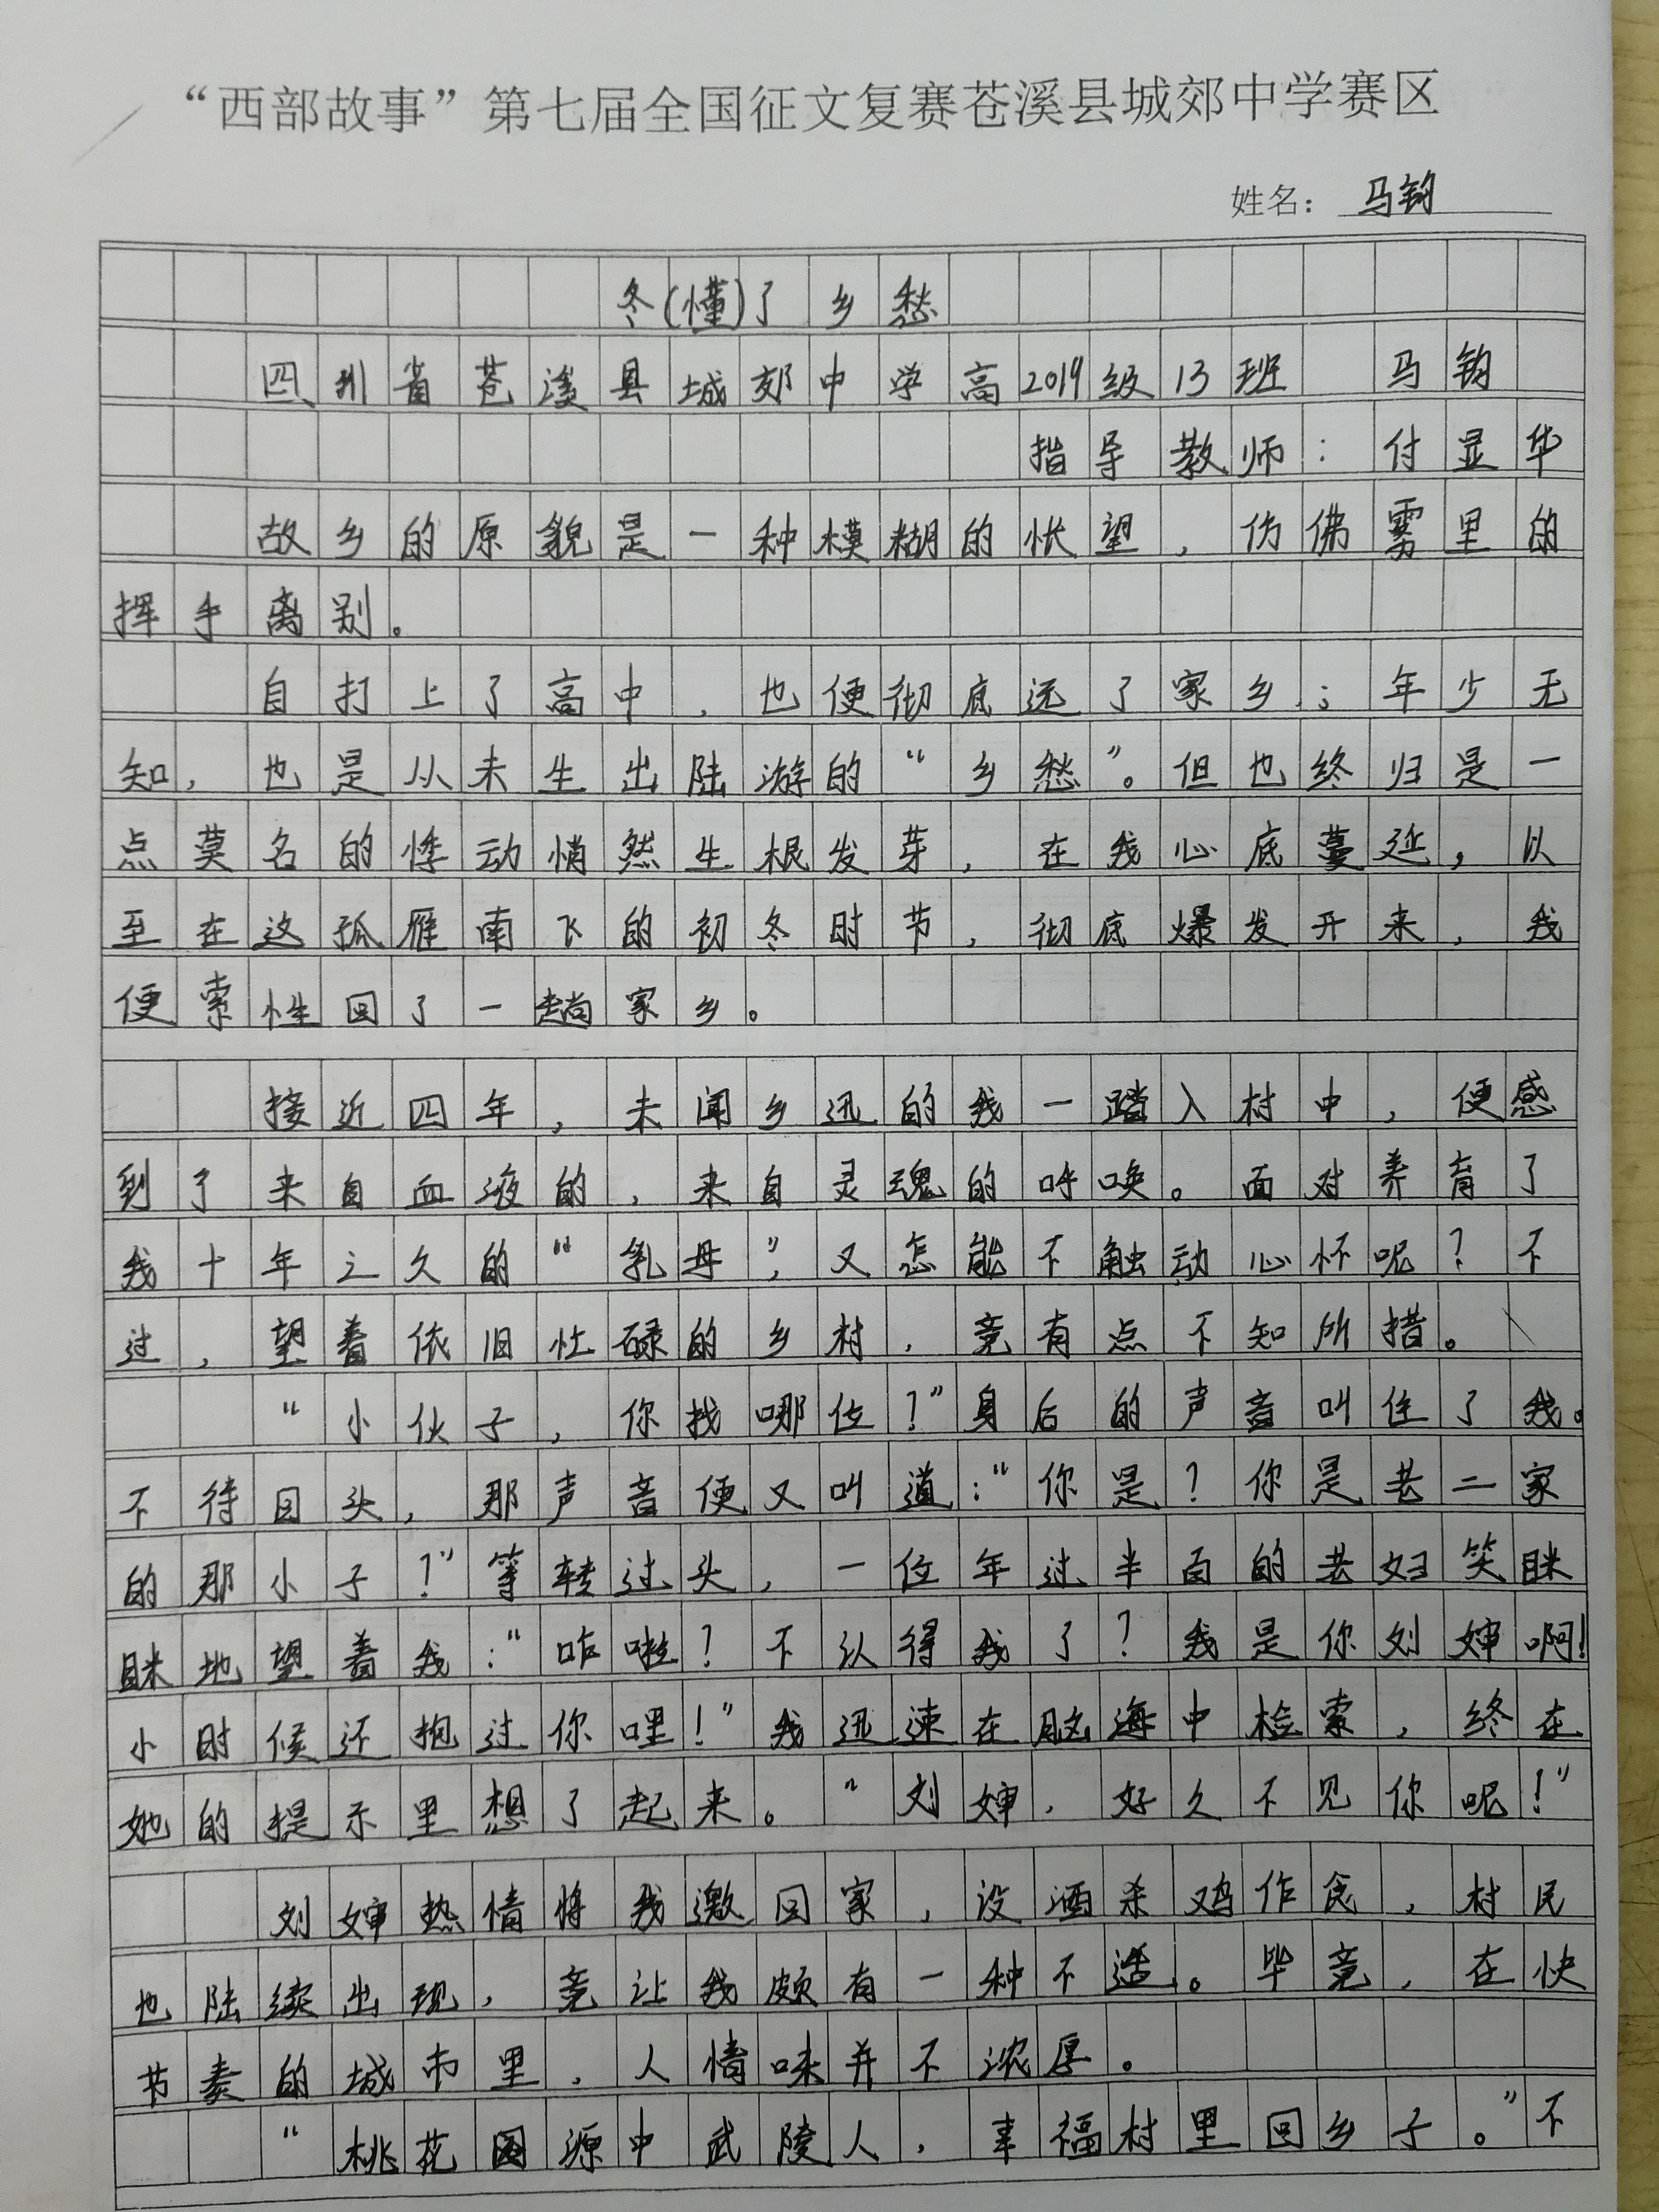 “西部故事”第七届全国征文复赛苍溪县城郊中学赛区
姓名：马钧
冬(懂)了乡愁
四川省苍溪县城郊中学高2019级13班 马钧
指导教师：付显华
故乡的原貌是一种模糊的怅望，仿佛雾里的
挥手离别。
自打上了高中，也便彻底远了家乡；年少无
知，也是从未生出陆游的“乡愁”。但也终归是一
点莫名的悸动悄然生根发芽，在我心底蔓延，以
至在这孤雁南飞的初冬时节，彻底爆发开来，我
便索性回了一趟家乡。
接近四年，未闻乡迅的我一踏入村中，便感
到了来自血液的，来自灵魂的呼唤。面对养育了
我十年之久的“乳母”，又怎能不触动心怀呢？不
过，望着依旧忙碌的乡村，竟有点不知所措。
“小伙子，你找哪位？”身后的声音叫住了我。
不待回头，那声音便又叫道：“你是？你是老二家
的那小子？”等转过头，一位年过半百的老妇笑眯
眯地望着我：“咋啦？不认得我了？我是你刘婶啊！
小时候还抱过你哩！”我迅速在脑海中检索，终在
她的提示里想了起来。“刘婶，好久不见你呢！”
刘婶热情将我邀回家，设酒杀鸡作食，村民
也陆续出现，竟让我颇有一种不适。毕竟，在快
节奏的城市里，人情味并不浓厚。
“桃花源中武陵人，幸福村里回乡子。”不